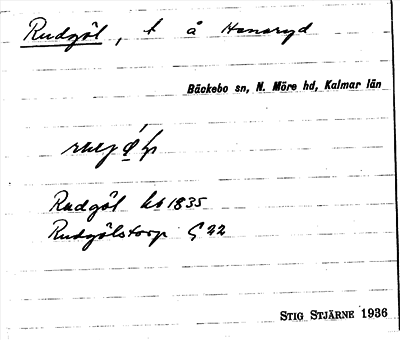 Rudgöl, t å Hanaryd
Bäckebo sn, N. Möre hd, Kalmar län
Rudgöl kb 1835
Rudgölstorp G 22
STIG STJÄRNE 1936